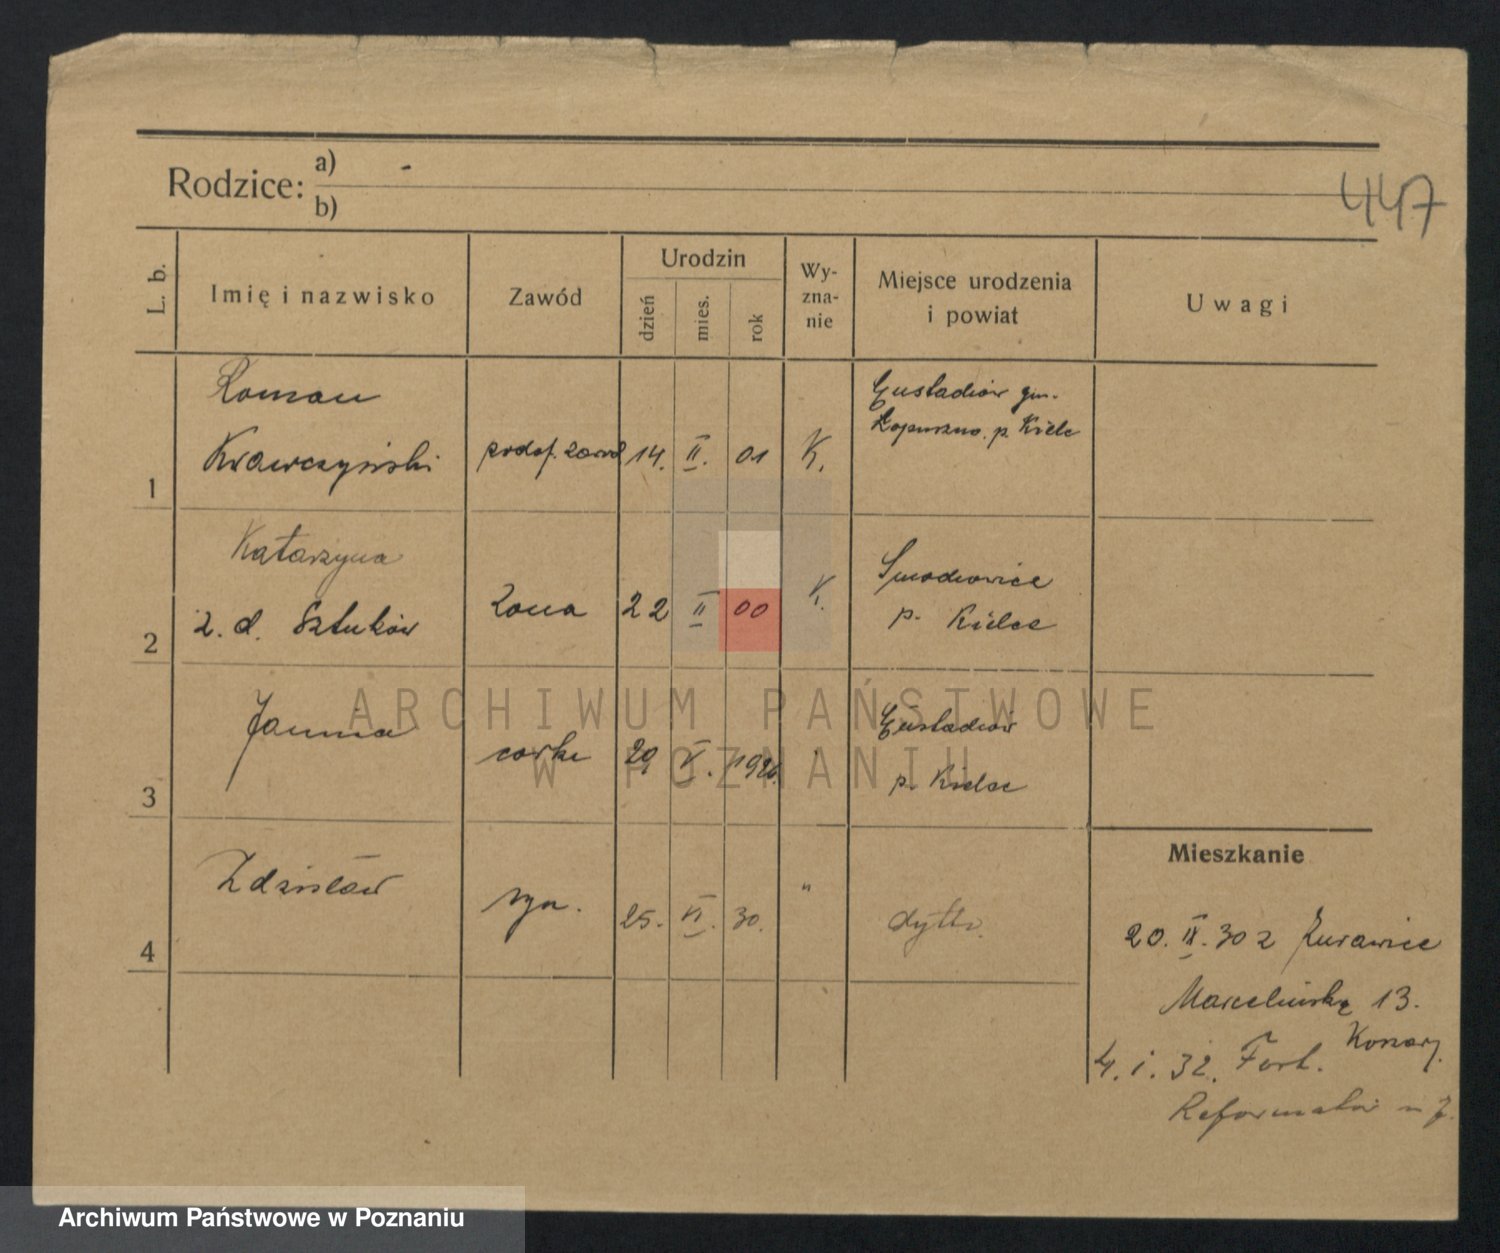 Rodzice: a) -
b)
447
L. b.
Imię i nazwisko
Zawód
Urodzin
dzień
mies.
rok
Wy-
zna-
nie
Miejsce urodzenia
i powiat
Uwagi
Roman
Krawczyński
podof. zawod
14. II. 01
K.
Eustachów gm.
Łopuszno. p. Kielc
1
Katarzyna
z. d. Sztuków
żona
22 II 00
K.
Smochowice
p. Kielce
2
Janina
corka
29 V. 192
Eustachów
p. Kielce
3
Zdzisław
syn.
25. VI. 30.
"
dytto.
4
Mieszkanie
20. IX. 30 z Żurawice
Marcelińska 13.
Koszary
4. I. 32. Fort.
Reformatów
ARCHIWUM PAŃSTWOWE
W POZNANIU
Archiwum Państwowe w Poznaniu